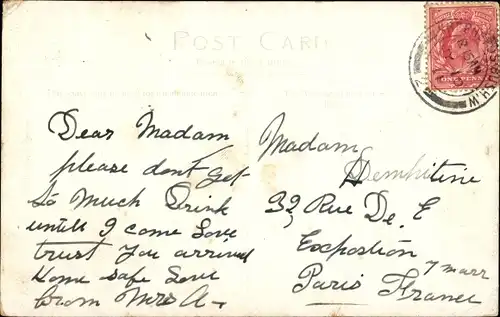 POST CARD
ONE PENNY
Dear Madam
please dont get
so Much Drink
untill I come Love
trust you arrived
Home safe Love
from Mrs A
Madam
Demhitine
32 Rue De. E
Expostion
7 marr
Paris France